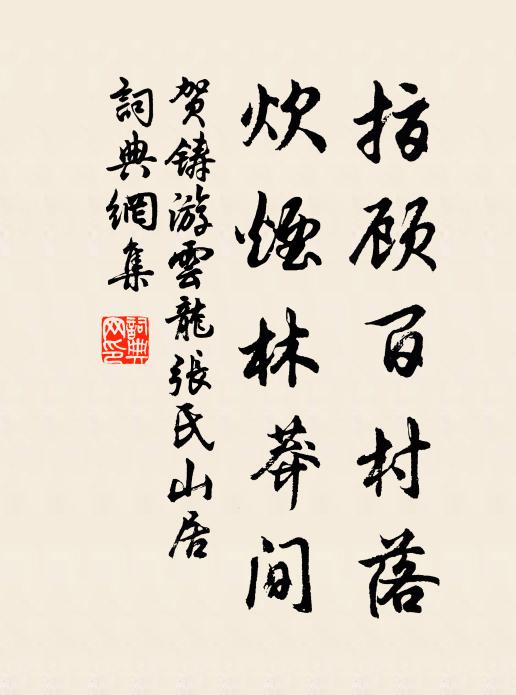 指顾百村落
炊煙林莽间
贺铸游雲龍張氏山居
詞典網集
詞典网印